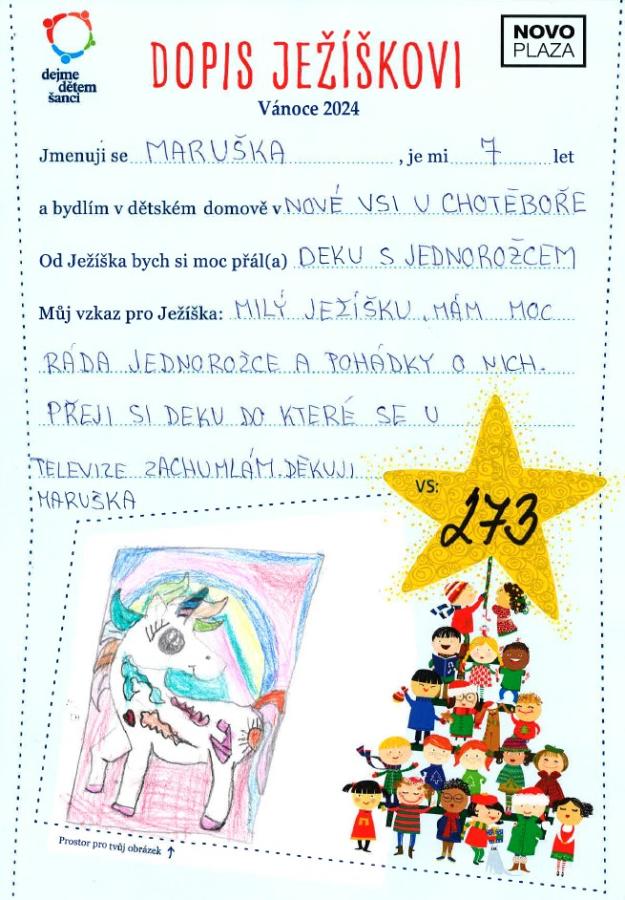 dejme
dětem
šanci
DOPIS JEŽÍŠKOVI
NOVO
PLAZA
Vánoce 2024
Jmenuji se MARUŠKA, je mi 7 let
a bydlím v dětském domově v NOVÉ VSI U CHOTĚBOŘE
Od Ježíška bych si moc přál(a) DEKU S JEDNOROŽCEM
Můj vzkaz pro Ježíška: MILÝ JEŽÍŠKU, MÁM MOC
RÁDA JEDNOROŽCE A POHÁDKY O NICH.
PŘEJI SI DEKU DO KTERÉ SE U
TELEVIZE ZACHUMLÁM. DĚKUJI
MARUŠKA
VS:
273
Prostor pro tvůj obrázek